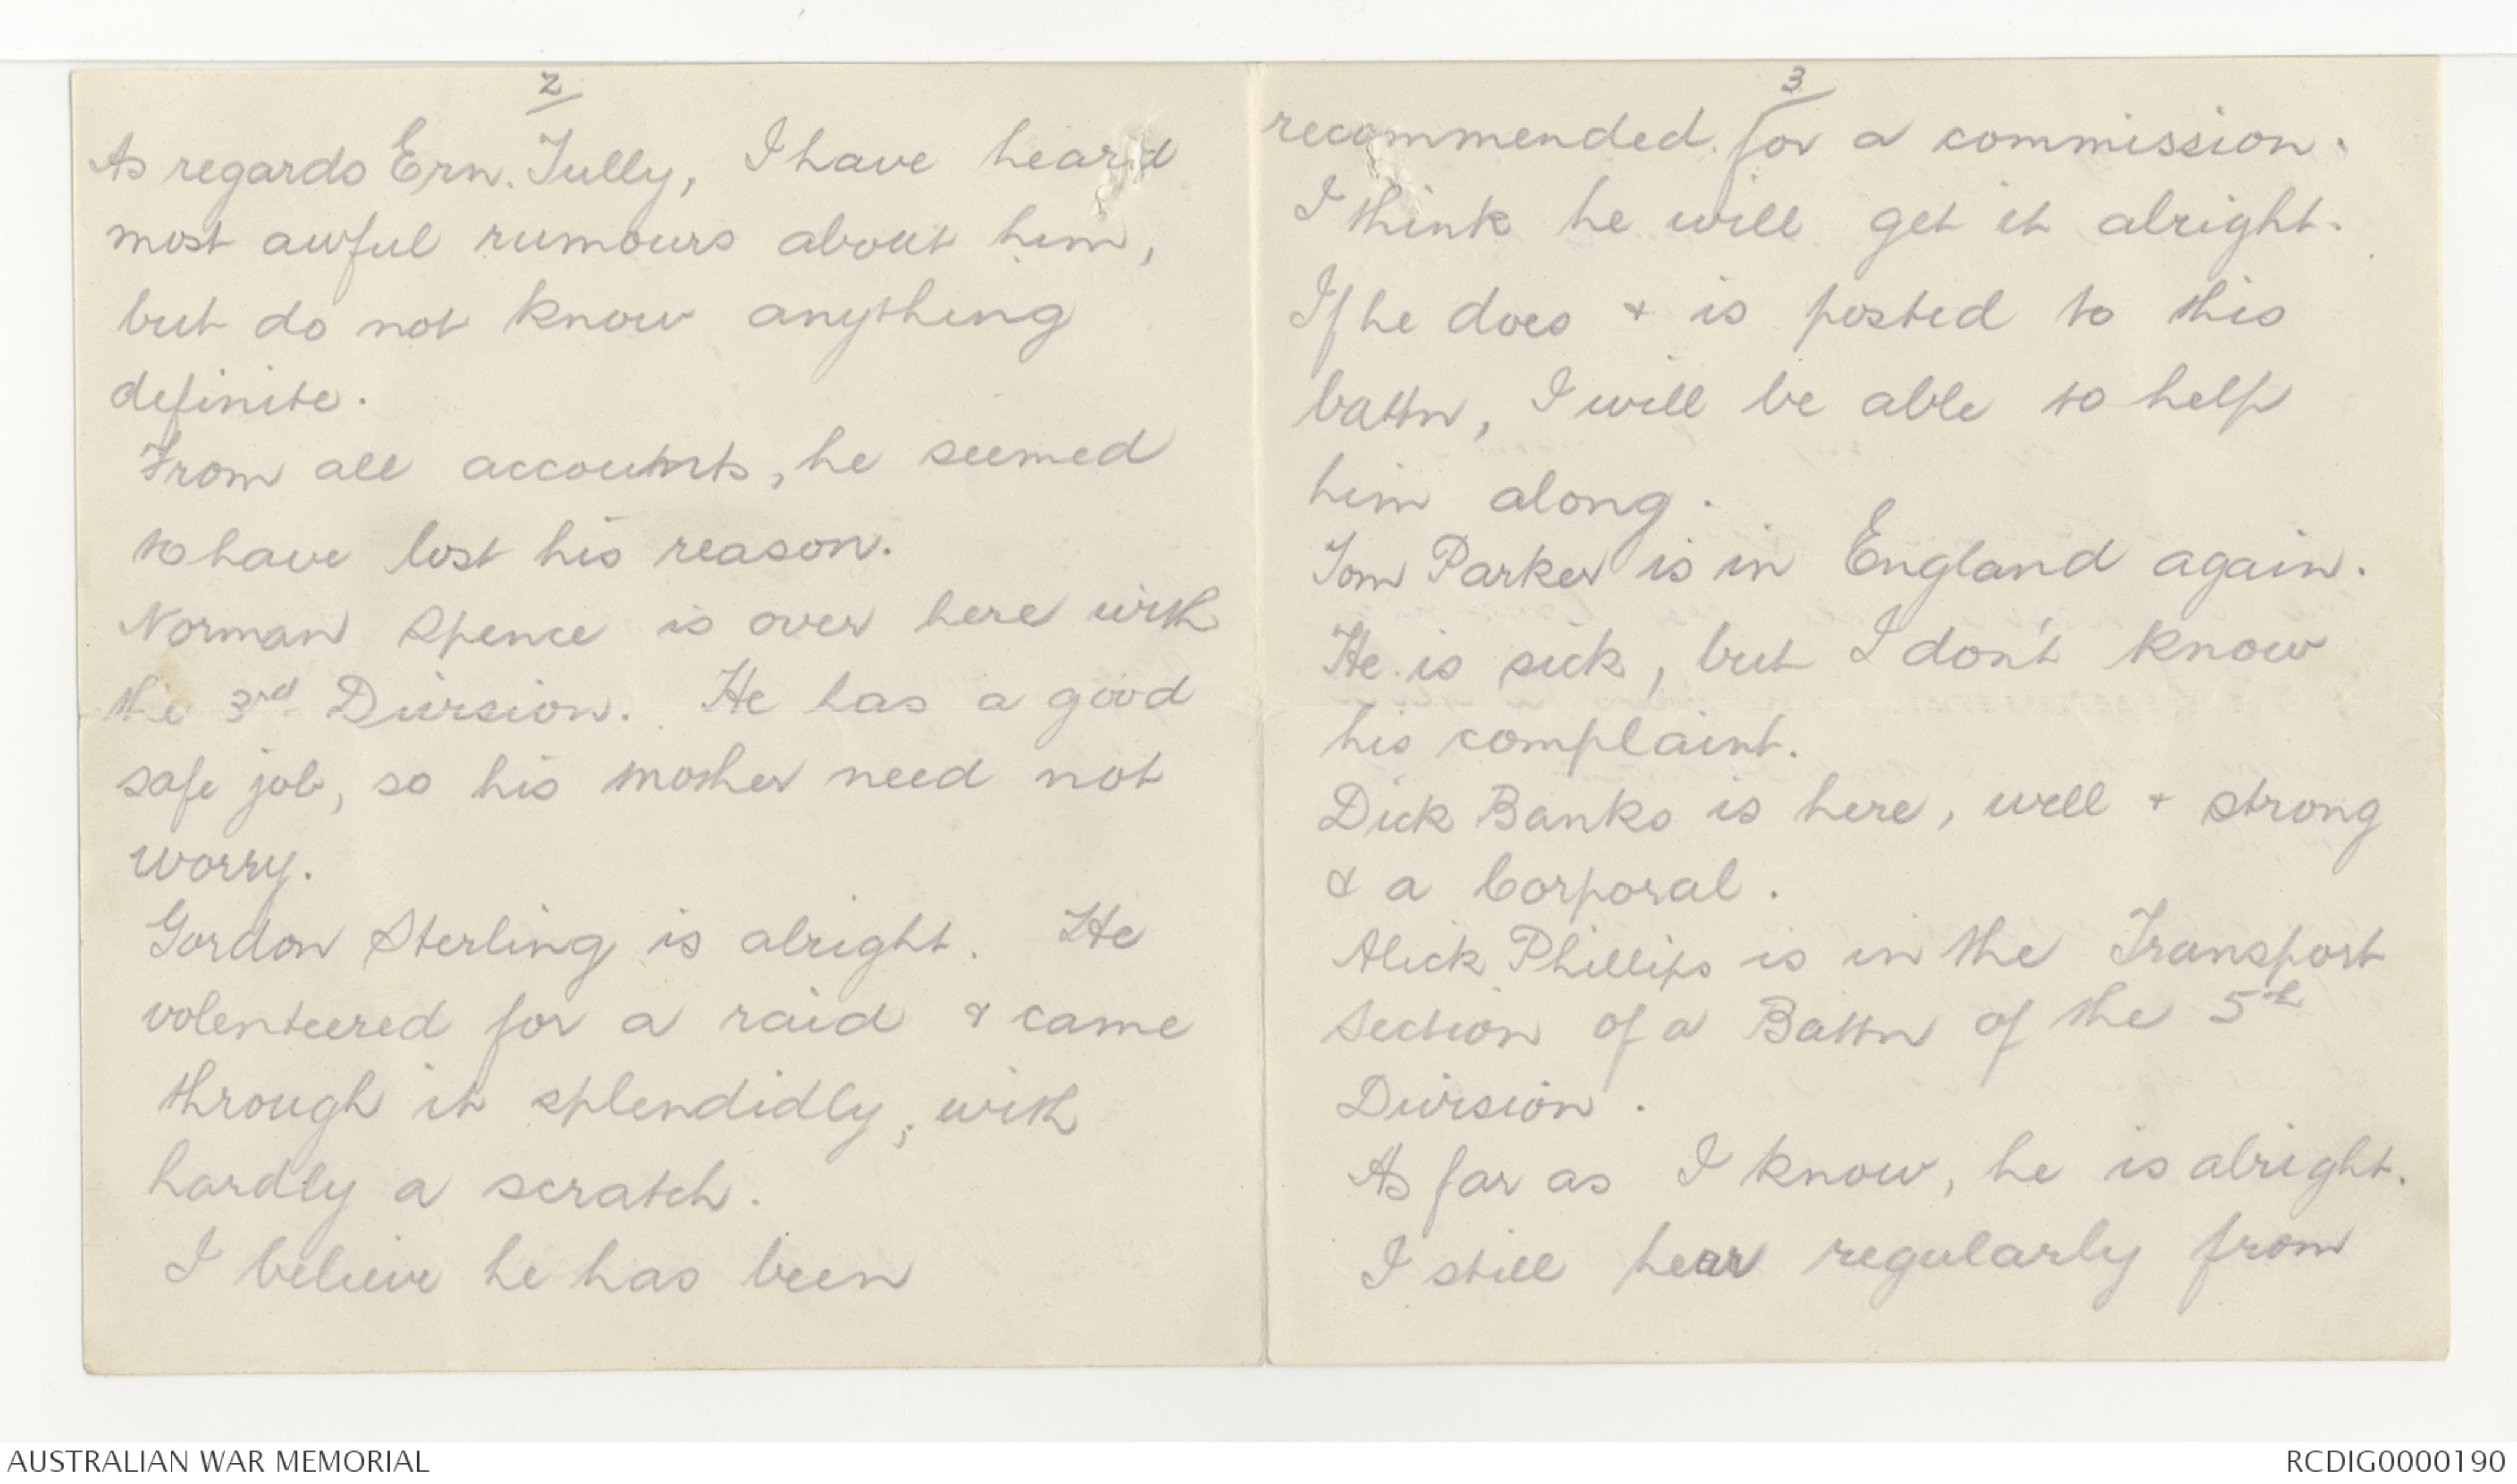 2
As regards Ern. Tully, I have heard
most awful rumours about him,
but do not know anything
definite.
From all accounts, he seemed
to have lost his reason.
Norman Spence is over here with
the 3rd Division. He has a good
safe job, so his mother need not
worry.
Gordon Sterling is alright. He
volenteered for a raid & came
through it splendidly, with
hardly a scratch.
I believe he has been
3
recommended for a commission.
I think he will get it alright.
If he does & is posted to this
battn, I will be able to help
him along.
Tom Parker is in England again.
He is sick, but I don't know
his complaint.
Dick Banks is here, well & strong
& a Corporal.
Alick Phillips is in the Transport
Section of a Battn of the 5th
Division.
As far as I know, he is alright.
I still hear regularly from
AUSTRALIAN WAR MEMORIAL
RCDIG0000190